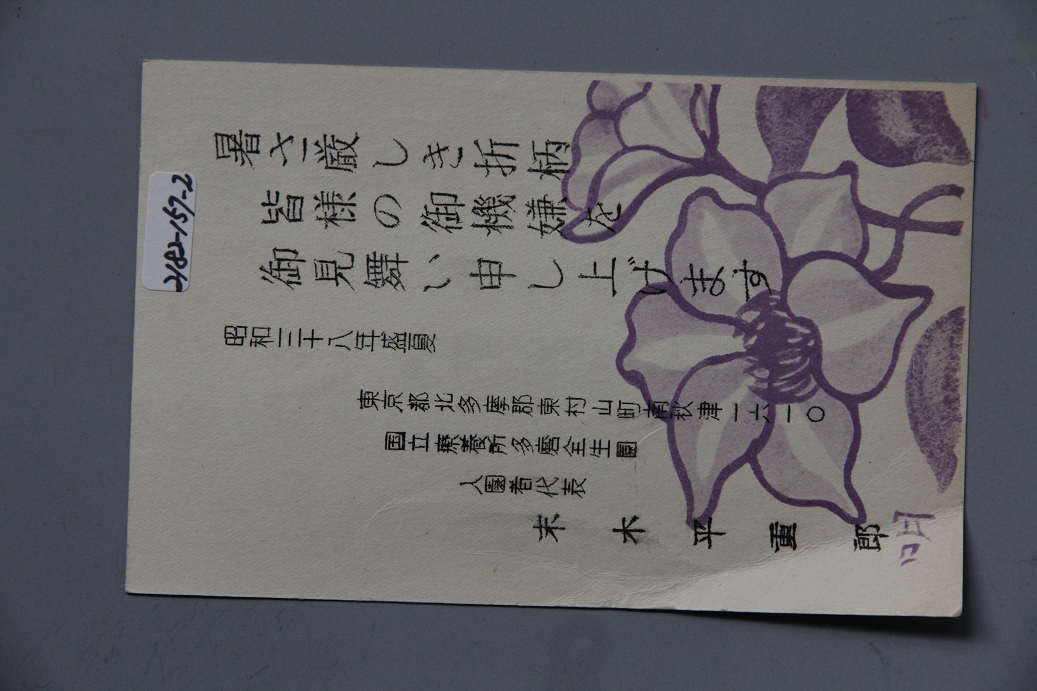 暑さ厳しき折柄
皆様の御機嫌を
御見舞い申し上げます
昭和三十八年盛夏
東京都北多摩郡東村山町南秋津一六一〇
国立療養所多磨全生園
入園者代表
末木平重郎
2182-157-2